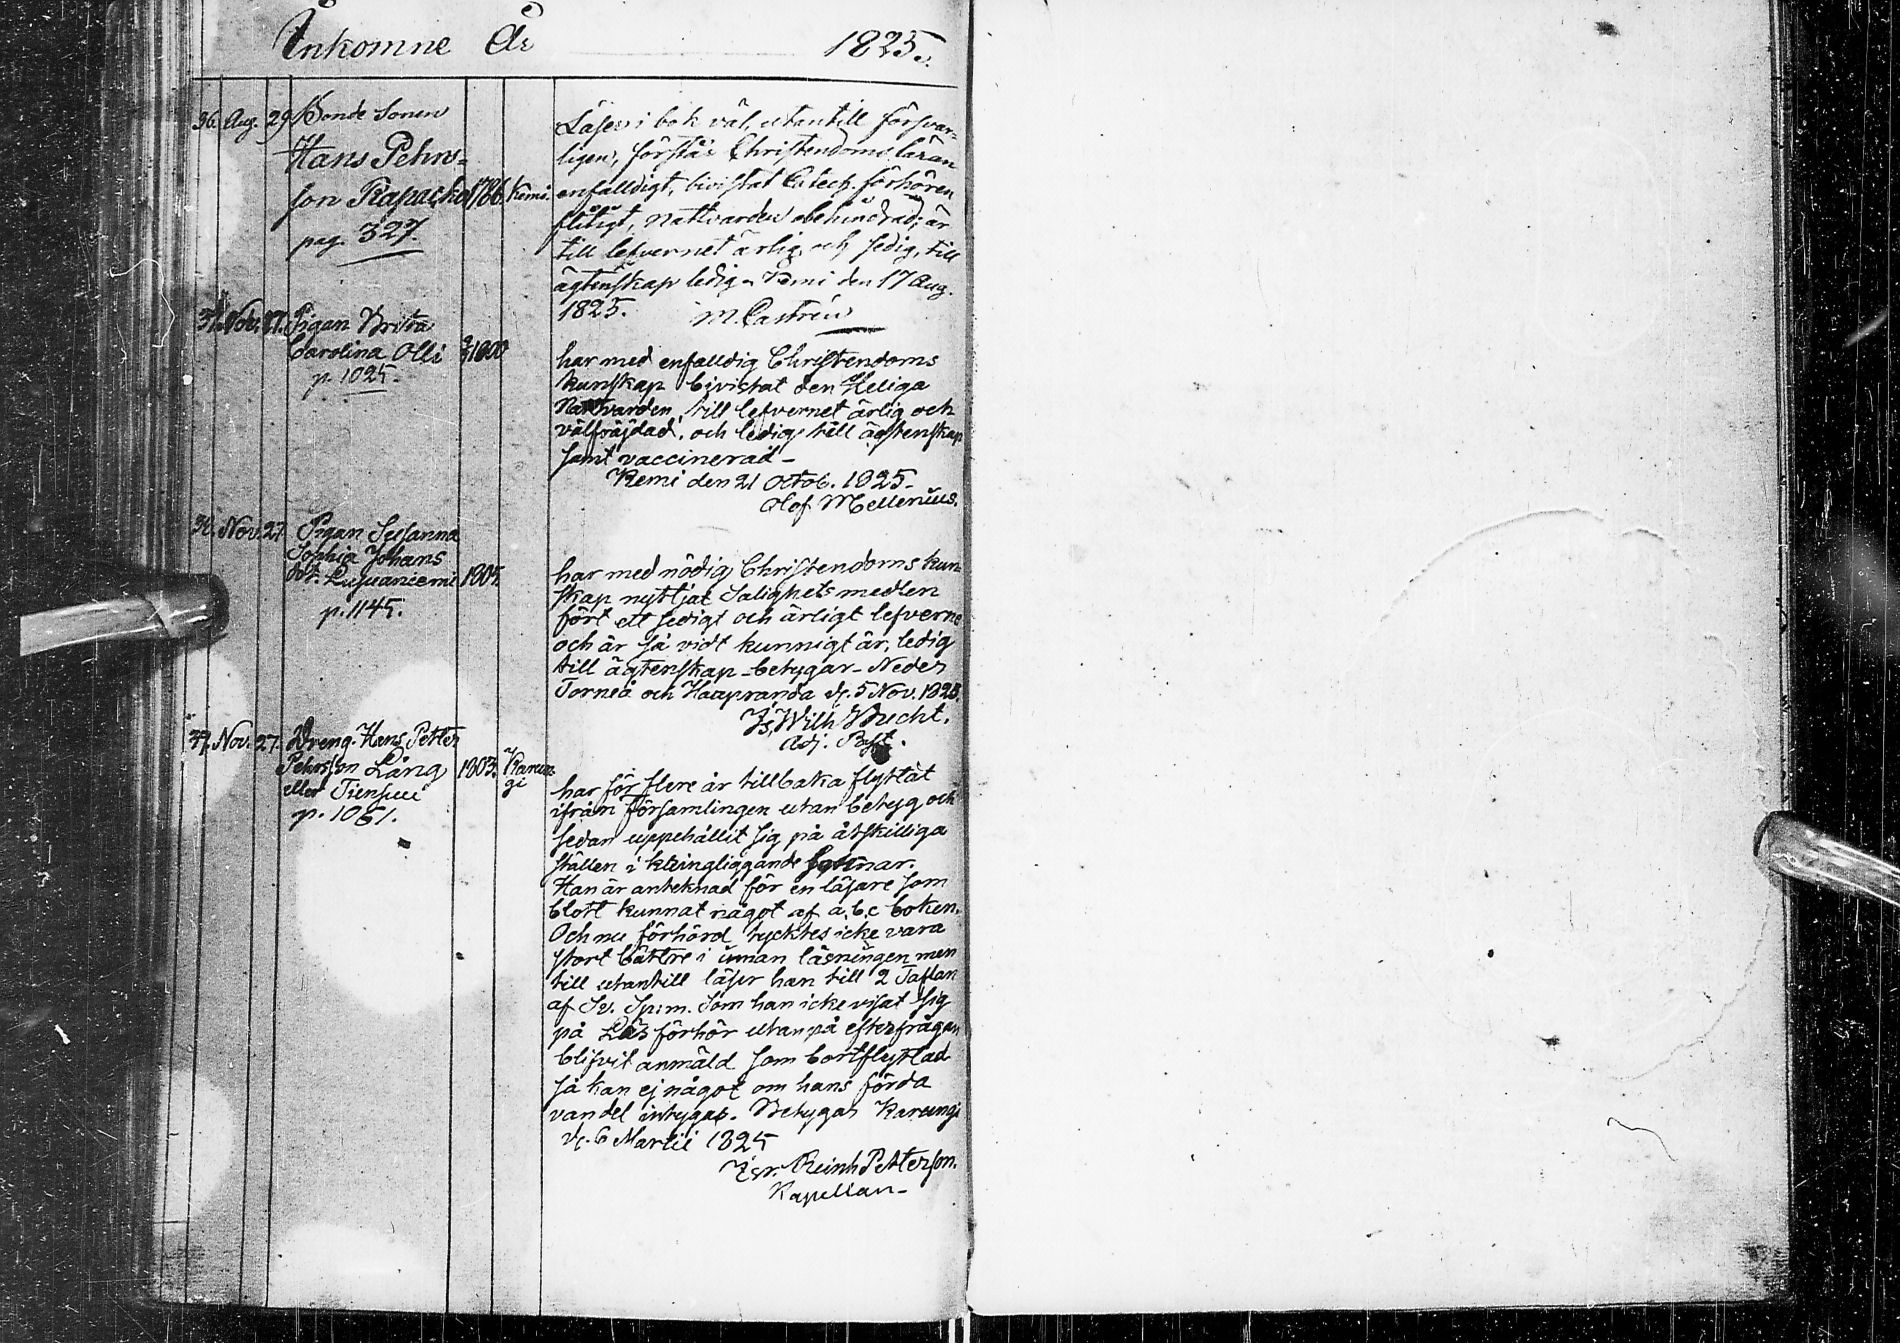 Inkomne År 1825.
36. Aug. 29 Bonde Sonen
Hans Pehrs-
son Rapacko 1786. Kemi.
pag. 327.
Läser i bok väl, utantill försvar-
ligen, förstår Christendoms läran
enfalldigt, bivistat Catech. förhören
flitigt, nattvarden obehindrad; är
till lefvernet ärlig och sedig, till
ägtenskap ledig. Kemi den 17 Aug.
1825. M. Castrén
37. Nov. 27. Pigan Brita
Carolina Olli 1800
p. 1025.
har med enfalldig Christendoms
kunskap bivistat den Heliga
Nattvarden, till lefvernet ärlig och
välfräjdad, och ledig till ägtenskap
samt vaccinerad –
Kemi den 21 Octob. 1825.
Olof Mellenius.
38. Nov. 27. Pigan Susanna
Sophia Johans
dot. 1805.
p. 1145.
har med nödig Christendoms kun-
skap nyttjat Salighets medlen
fört ett sedigt och ärligt lefverne
och är så vidt kunnigt är, ledig
till ägtenskap – betygar – Neder
Torneå och Haapranda d. 5 Nov. 1825.
Js. Wilh. Brecht.
Adj. Past.
39. Nov. 27. Dreng. Hans Petter
Pehrsson Lång 1803. Karun-
gi
eller Tiensuu
p. 1061.
har för flere år tillbaka flyttat
ifrån Församlingen utan betyg och
sedan uppehållit sig på åtskilliga
ställen i kringliggande Socknar.
Han är anteknad för en läsare som
blott kunnat något af a.b.c boken.
Och nu förhörd, tycktes icke vara
stort bättre i innan läsningen men
till utantill läser han till 2 Taflan
af Sv. Sp: m. Som han icke visat sig
på Läsförhör utan på efterfrågan
blifvit anmäld som bortflyttad
så kan ej något om hans förda
vandel intygas. Betygas Karungi
d. 6 Martii 1825
Isr. Reinh Petterson.
Kapellan –